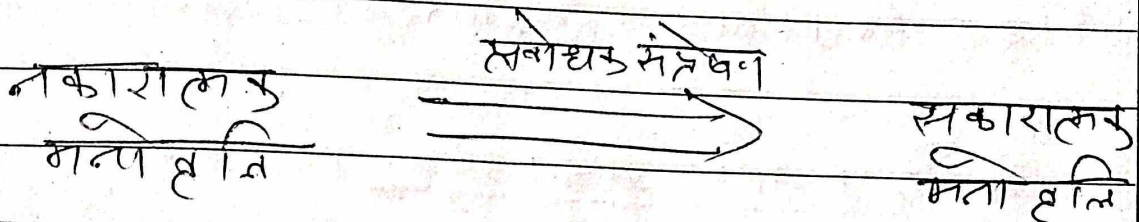 नकारात्मक
मनोवृत्ति
प्रबोधक संप्रेषण
सकारात्मक
मनोवृत्ति